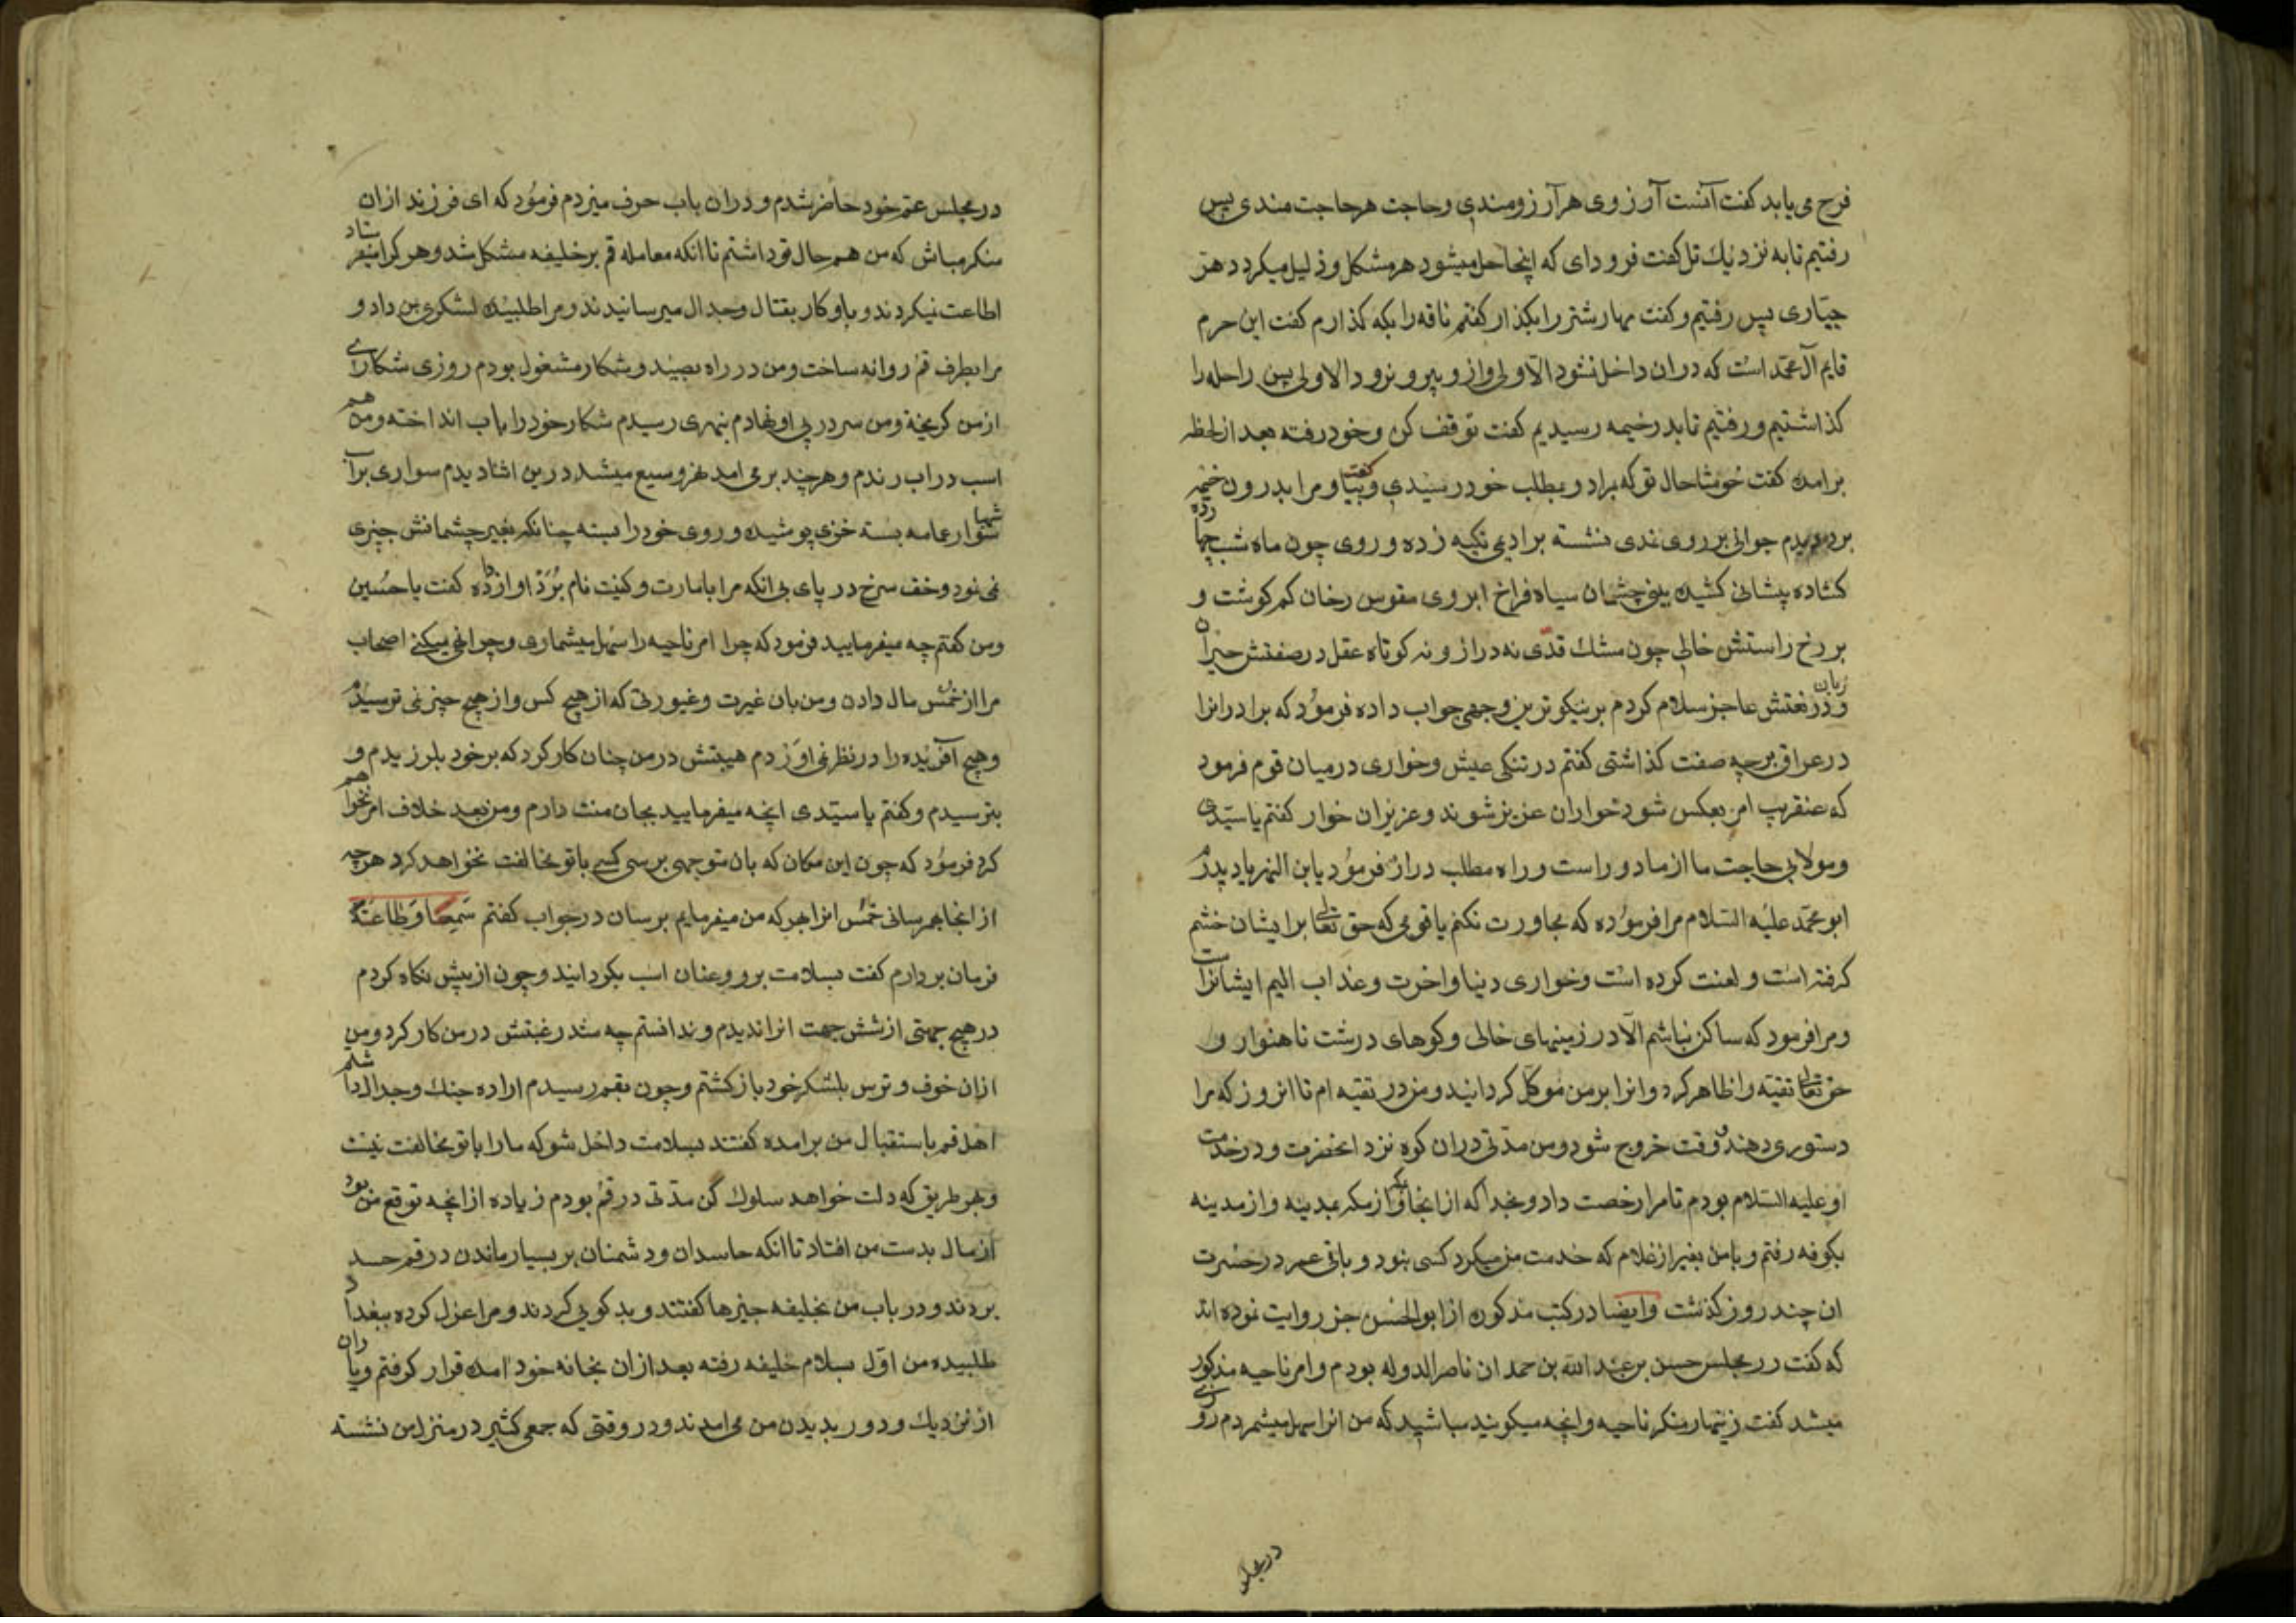 فرح می یابد کفت آنست آرزوی هر آرزومندی وحاجت هر حاجت مندی پس
رفتیم تا به نزدیك تل کفت فرود ای که اینجا حل میشود هر مشکل وذلیل میکردد هر
جبّاری پس رفتیم وکفت مهار شتر را بکذار کفتم ناقه را بکه کذارم کفت این حرم
قایم آل محمّد است که دران داخل نشود الّا ولی وازو بیرون نرود الا ولی پس راحله را
کذاشتیم ورفتیم تا بدر خیمه رسیدیم کفت توقف کن وخود رفته بعد از لحظه
برامده کفت خوشا حال تو که بمراد ومطلب خود رسیدی وکفت بیا ومرا بدرون خیمه
برد دیدم جوانی بر روی نمدی نشسته بر ادیمی تکیه زده وروی چون ماه شب چهارده
کشاده پیشانی کشیده بینی چشمان سیاه فراخ ابروی مقوس رخان کم کوشت و
بر رخ راستش خالی چون مشك قدّی نه دراز ونه کوتاه عقل در صفتش حیران
وزبان در نعتش عاجز سلام کردم بر نیکوترین وجهی جواب داده فرمُود که برادرانرا
در عراق بر چه صفت کذاشتی کفتم در تنکی عیش وخواری در میان قوم فرمود
که عنقریب امر بعکس شود خواران عزیز شوند وعزیزان خوار کفتم یا سیّدی
ومولایی حاجت ما از ما دوراست وراه مطلب دراز فرمُود یابن المهزیاد پدرم
ابو محمّد علیه السّلام مرا فرمُوده که مجاورت نکنم با قومی که حق تعالی بر ایشان خشم
کرفته است ولعنت کرده است وخواری دنیا واخرت وعذاب الیم ایشانراست
ومرا فرمود که ساکن نباشم الّا در زمینهای خالی وکوهای درشت ناهموار و
حق تعالی تقیّه را ظاهر کرد وانرا بر من موکل کردانید ومن در تقیه ام تا انروز که مرا
دستوری دهند ووقت خروج شود ومن مدّتی دران کوه نزد انحضرت ودر خدمت
او علیه السّلام بودم تا مرا رخصت داد وبخدا که از انجا بمکه واز مکه بمدینه واز مدینه
بکوفه رفتم وبا من بغیر از غلام که خدمت من میکرد کسی نبود وباقی عمر در حسرت
ان چند روز کذشت وایضا در کتب مذکوره از ابو الحسن جز روایت نموده اند
که کفت در مجلس حسن بن عبد الله بن حمدان ناصر الدوله بودم وامر ناحیه مذکور
میشد کفت زینهار منکر ناحیه وانچه میکویند مباشید که من انرا سهل میشمردم روزی
در مجلس
در مجلس عمّ خود حاضر شدم ودران باب حرف میزدم فرمُود که ای فرزند ازان
منکر مباش که من هم حال تو داشتم تا انکه معامله قم بر خلیفه مشکل شد وهر کرا میفرستاد
اطاعت نمیکردند وباو کار بقتال وجدال میرسانیدند ومرا طلبیده لشکری بمن داد و
مرا بطرف قم روانه ساخت ومن در راه بصید وشکار مشغول بودم روزی شکاری
از من کریخته ومن سر در پی او نهادم بنهری رسیدم شکار خود را باب انداخته ومن هم
اسب در اب رندم وهر چند بر می امد نهر وسیع میشد درین اثنا دیدم سواری بر اسب
شهبا سوار عمامه بسته خزی پوشیده وروی خود را بسته چنانکه بغیر چشمانش چیزی
نمی نمود وخف سرخ در پای بی انکه مرا بامارت وکنیت نام بَرَد اواز داده کفت یا حسین
ومن کفتم چه میفرمایید فرمود که چرا امر ناحیه را سهل میشماری وچرا نمی میکنی اصحاب
مرا از خمس مال دادن ومن بان غیرت وغیورتی که از هیچ کس واز هیچ چیز نمی ترسیدم
وهیچ آفریده را در نظر نمی اوَردم هیبتش در من چنان کار کرد که بر خود بلرزیدم و
بترسیدم وکفتم یا سیّدی انچه میفرمایید بجان منت دارم ومن بعد خلاف امر نخواهم
کرد فرمُود که چون این مکان که بان متوجهی برسی کسی با تو مخالفت نخواهد کرد هر چه
از انجا بهم رسانی خمُس انرا بهر که من میفرمایم برسان در جواب کفتم سَمِعًا وَطَاعَتًه
فرمان بردارم کفت بسلامت برو وعنان اسب بکردانید وچون از پیش نکاه کردم
در هیچ جهتی از شش جهت انرا ندیدم وندانستم چه شد رغبتش در من کار کرد ومن
ازان خوف وترس بلشکر خود باز کشتم وچون بقم رسیدم اراده جنك وجدال داشتم
اهل قم باستقبال من برامده کفتند بسلامت داخل شو که مارا با تو مخالفت نیست
وبهر طریق که دلت خواهد سلوك کن مدّتی در قم بودم زیاده از انچه توقع من بود
از مال بدست من افتاد تا انکه حاسدان ودشمنان بر بسیار ماندن در قم حسد
بردند ودر باب من بخلیفه چیزها کفتند وبد کویی کردند ومرا عزل کرده ببغداد
طلبیده من اوّل بسلام خلیفه رفته بعد ازان بخانه خود امده قرار کرفتم ویاران
از نزدیك ودور بدیدن من می امدند ودر وقتی که جمعی کثیر در منزل من نشسته